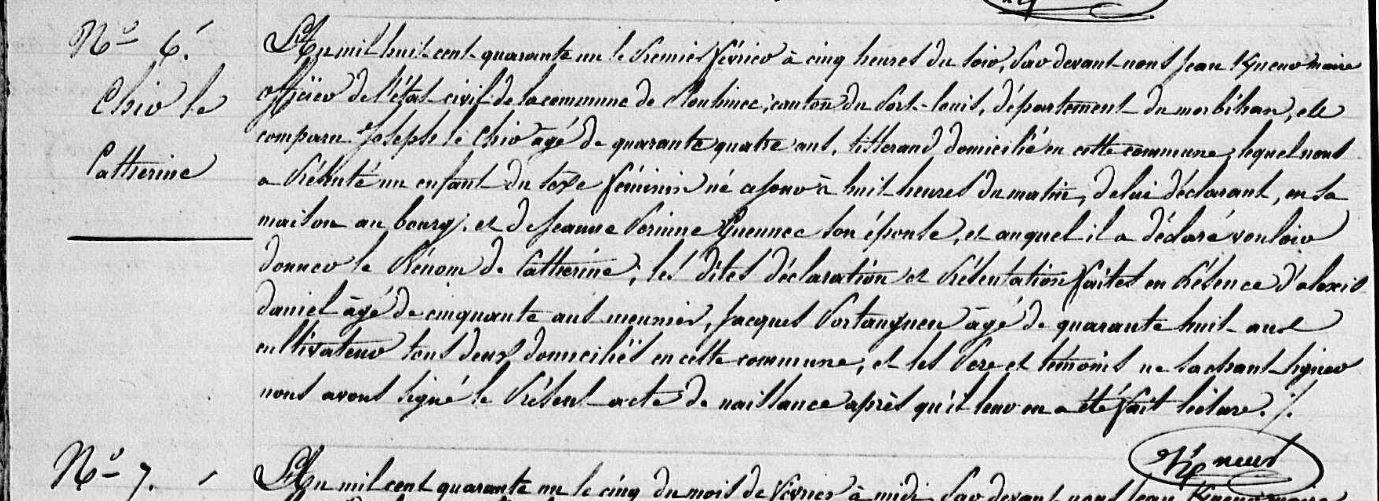 N.º 6.
Chir le
Catherine
L'An mil huit cent quarante un le premier février à cinq heures du soir, par devant nous Jean maire
officier de l'état civil de la commune de Plouhinec, canton du Port-louis, département du morbihan, est
comparu Joseph le Chir agé de quarante quatre ans, tisserand domicilié en cette commune, lequel nous
a présenté un enfant du sexe féminin né ajour à huit heures du matin, de lui déclarant, en sa
maison au bourg, et de Jeanne Perinne Guennec son épouse, et auquel il a déclaré vouloir
donner le Prénom de Catherine, les dites déclaration et présentation faites en présence d'alexis
daniel âgé de cinquante ans meunier, Jacques Portanguen âgé de quarante huit ans
cultivateur tous deux domiciliés en cette commune, et les Pere et témoins ne sachant signer
nous avons signé le Présent acte de naissance après qu'il leur en a été fait lecture. /.
N.º 7.
L'An mil cent quarante un le cinq du mois de février à midi par devant nous Jean